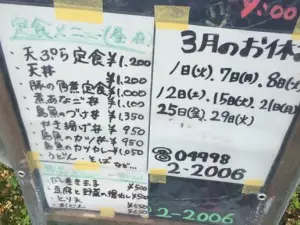 定食メニュー(昼夜)
天ぷら定食 ¥1,200
天丼 ¥1,200
豚の角煮定食 ¥1,000
煮あなご丼 ¥1,100
島魚のづけ丼 ¥1,350
かき揚げ丼 ¥950
島魚のカツ丼 ¥950
島魚のカツカレー ¥1,050
うどん・そば など…
だし巻き玉子 ¥500
豆腐と野菜の揚出し ¥500
とり天
9:00
3月のお休
1日(火)、7日(月)、8日
12日(土)、15日(火)、21日(月)
25日(金)、29(火)
☎04998
2-2006
2-2006